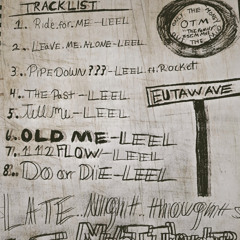 TRACKLIST
1.. Ride for ME - LEEL
2.. LEAVE ME ALONE - LEEL
3.. PIPEDOWN??? - LEEL ft. Rocket
4.. THE Past - LEEL
5.. tell me - LEEL
6.. OLD ME - LEEL
7.. 1112 FLOW - LEEL
8.. Do or DIE - LEEL
ONLY THE MOST
OTM
EUTAW AVE
LATE Night thoughts